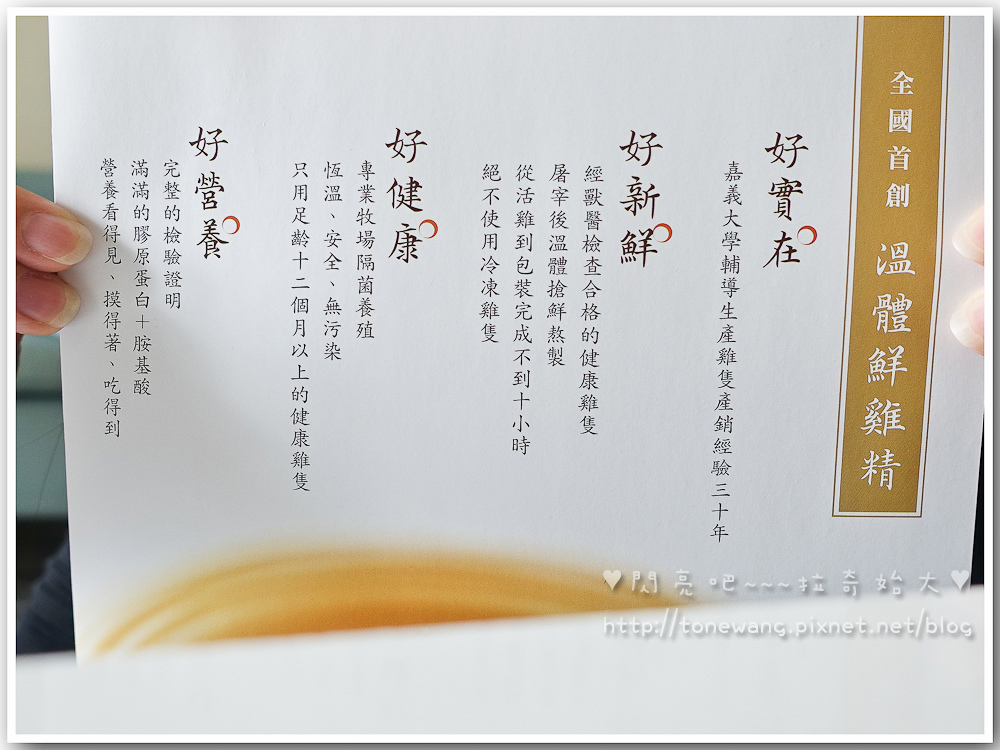 全國首創 溫體鮮雞精
好實在
嘉義大學輔導生產雞隻產銷經驗三十年
好新鮮
經獸醫檢查合格的健康雞隻
屠宰後溫體搶鮮熬製
從活雞到包裝完成不到十小時
絕不使用冷凍雞隻
好健康
專業牧場隔菌養殖
恆溫、安全、無污染
只用足齡十二個月以上的健康雞隻
好營養
完整的檢驗證明
滿滿的膠原蛋白+胺基酸
營養看得見、摸得著、吃得到
♥閃亮吧~~~拉奇始大♥
http://tonewang.pixnet.net/blog